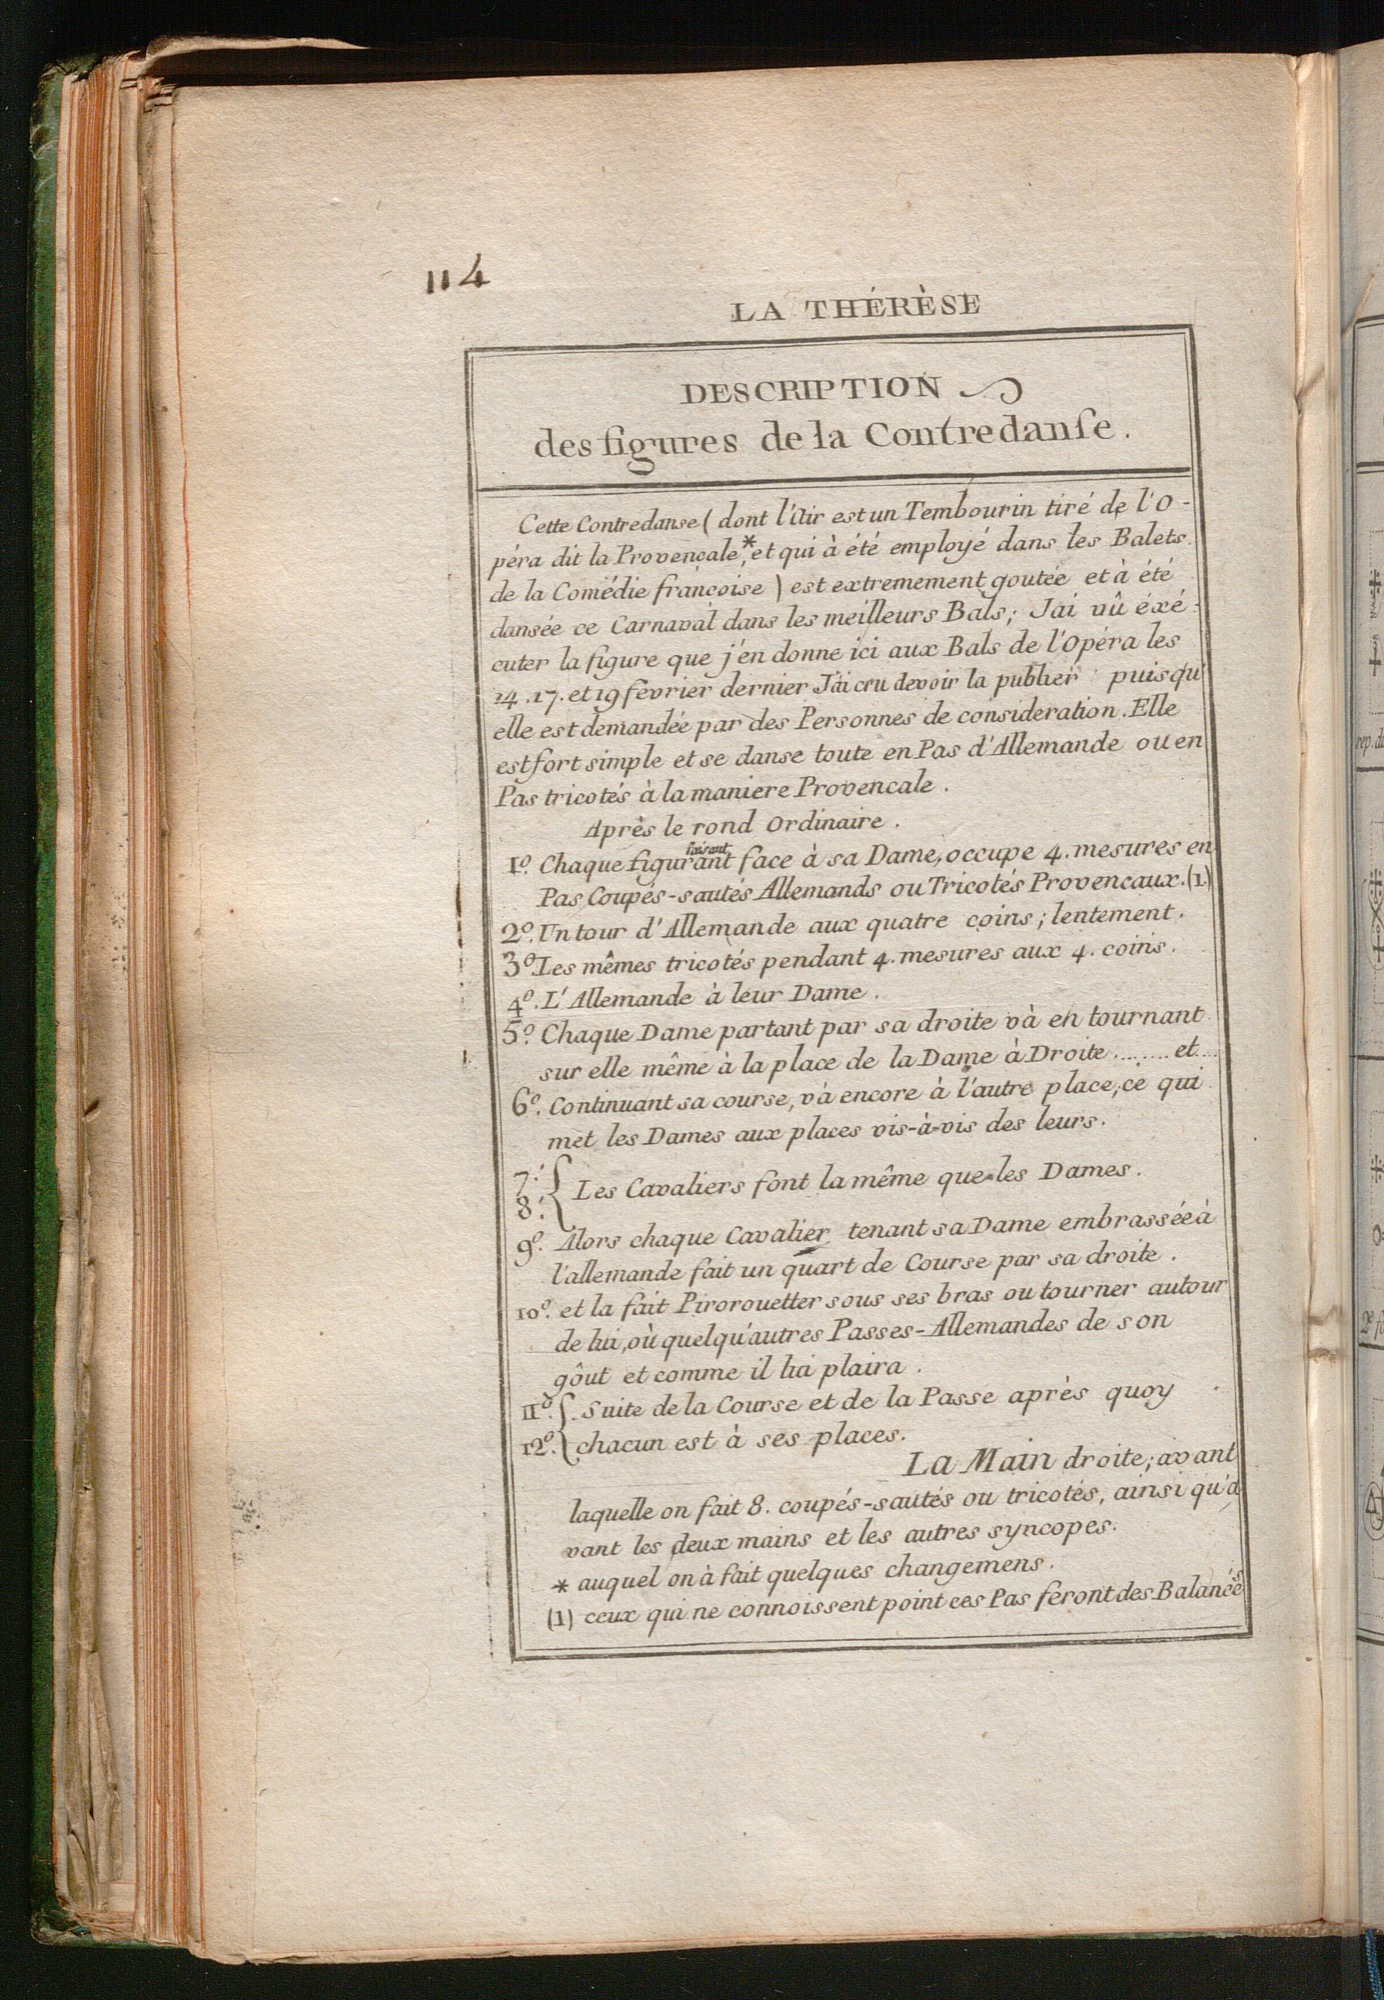 114
LA THÉRÈSE
DESCRIPTION
des figures de la Contredanſe.
Cette Contredanse ( dont l'Air est un Tembourin tiré de l'O-
péra dit la Provencale,* et qui à été employé dans les Balets
de la Comédie françoise ) est extremement goutée et à été
dansée ce Carnaval dans les meilleurs Bals; Jai vû éxé-
cuter la figure que j'en donne ici aux Bals de l'Opéra les
14.17. et 19 février dernier J'ai cru devoir la publier puisqu'
elle est demandée par des Personnes de consideration. Elle
est fort simple et se danse toute en Pas d'Allemande ou en
Pas tricotés à la maniere Provencale.
Après le rond Ordinaire.
1º. Chaque figurant faisant face à sa Dame, occupe 4. mesures en
Pas Coupés-sautés Allemands ou Tricotés Provencaux. (1)
2º. Un tour d'Allemande aux quatre coins; lentement.
3º. Les mêmes tricotés pendant 4. mesures aux 4. coins.
4º. L'Allemande à leur Dame.
5º. Chaque Dame partant par sa droite và en tournant
sur elle même à la place de la Dame à Droite ........ et ....
6º. Continuant sa course, và encore à l'autre place, ce qui
met les Dames aux places vis-à-vis des leurs.
7.
8. { Les Cavaliers font la même que les Dames.
9º. Alors chaque Cavalier tenant sa Dame embrassée à
l'allemande fait un quart de Course par sa droite.
10º. et la fait Pirorouetter sous ses bras ou tourner autour
de lui, où quelqu'autres Passes-Allemandes de son
gôut et comme il lui plaira.
11º. { Suite de la Course et de la Passe après quoy
12º. { chacun est à ses places.
La Main droite; avant
laquelle on fait 8. coupés-sautés ou tricotés, ainsi qu'a
vant les deux mains et les autres syncopes.
* auquel on à fait quelques changemens.
(1) ceux qui ne connoissent point ces Pas feront des Balancés